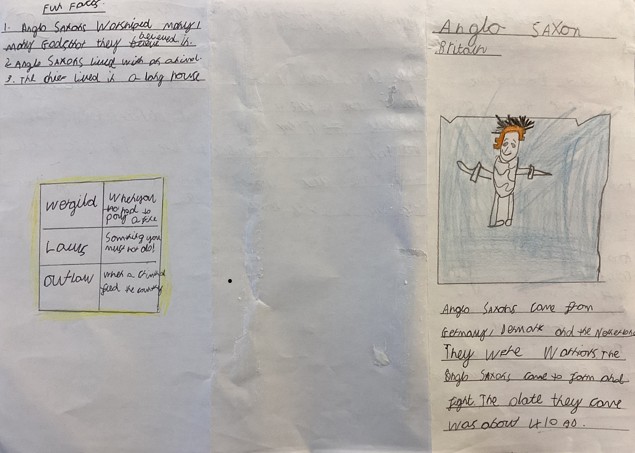 Fun Faces
1. Anglo Saxons Worshiped many
many Gods that they believe believed in.
2. Anglo Saxons lived with
3. The chief lived in a long house
wergild
When you
had to
pay a fine
Laws
Somthing you
must not do!
outlaw
when a
the country
Anglo Saxon
Britain
Anglo Saxons came from
Germany, Denmark and the Netherlands
They were Warriors The
Anglo Saxons came to farm and
fight The date they came
was about 410 AD.